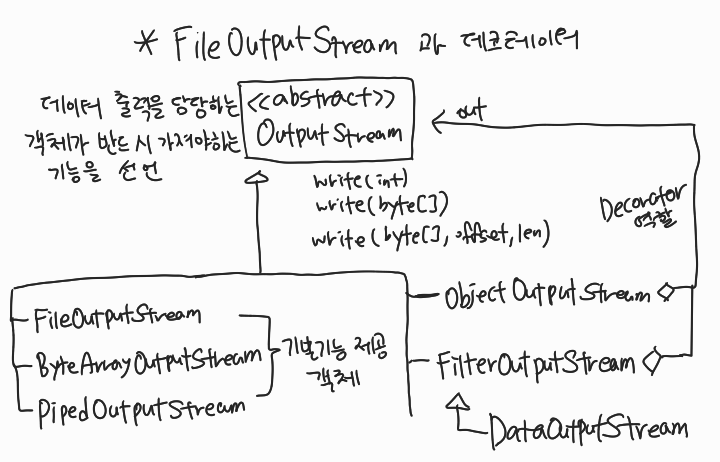 * FileOutputStream 과 데코레이터
데이터 출력을 담당하는
객체가 반드시 가져야하는
기능을 선언
<<abstract>>
OutputStream
out
write(int)
write(byte[])
write(byte[], offset, len)
Decorator
역할
FileOutputStream
ByteArrayOutputStream
PipedOutputStream
기본기능 제공
객체
ObjectOutputStream
FilterOutputStream
DataOutputStream